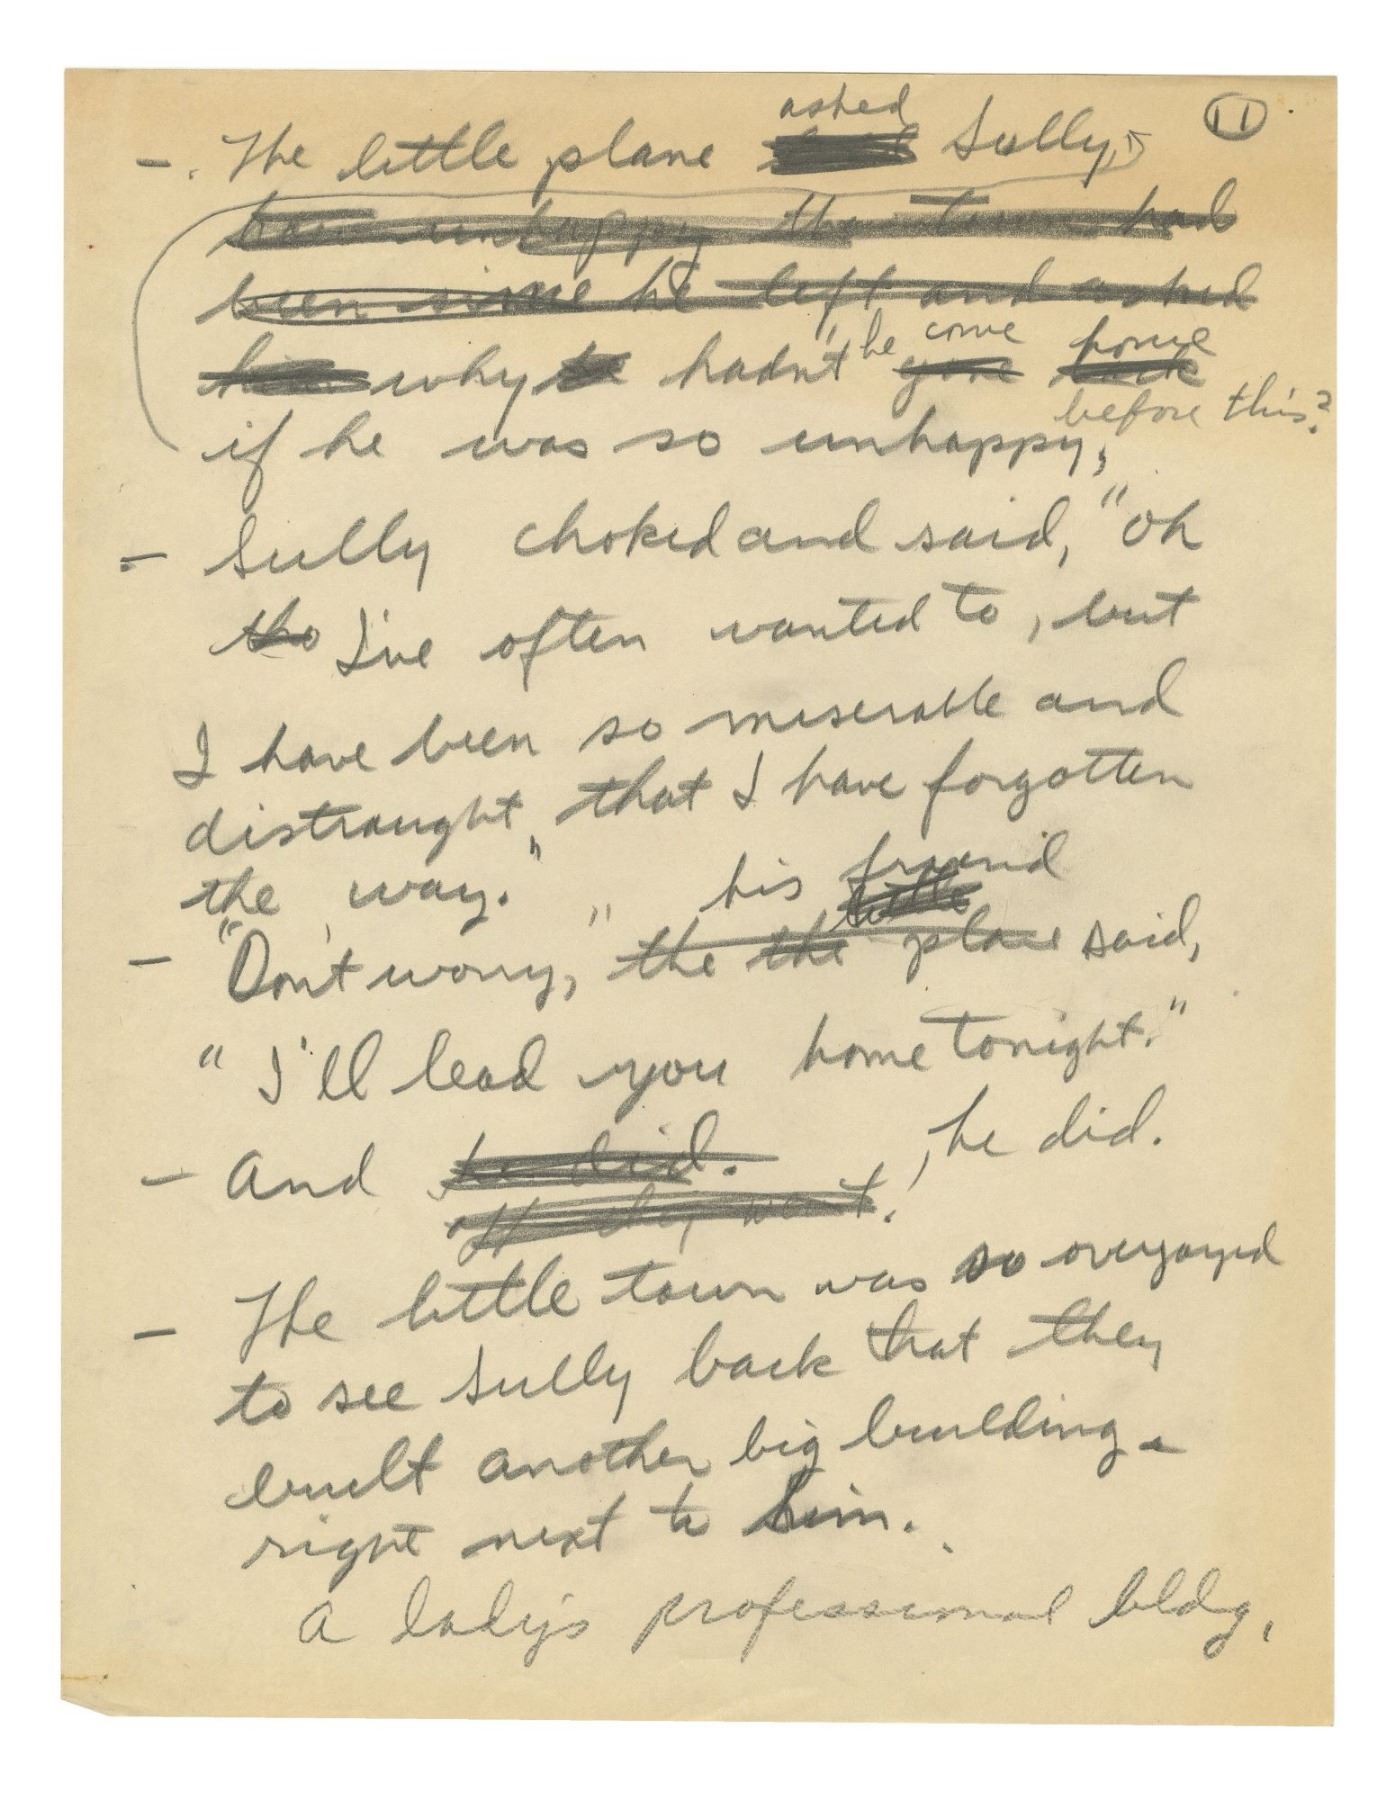 11
asked
- . The little plane Sully,
how unhappy the town had
been since he left and asked
he come home
him why he hadn't gone back
before this?
if he was so unhappy,
- Sully choked and said, "oh
tho I've often wanted to, but
I have been so miserable and
distraught, that I have forgotten
the way."
his friend
little
- "Don't worry," the the plane said,
"I'll lead you home tonight."
- And he did. , he did.
off they went!
- The little town was so overjoyed
to see Sully back that they
built another big building -
right next to him.
A lady's professional bldg,